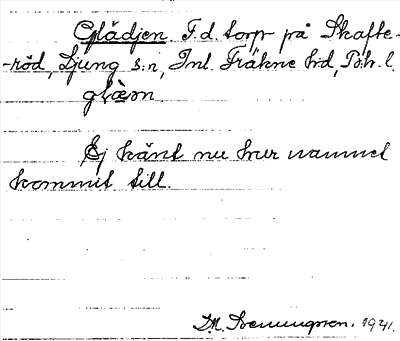 Glädjen. F.d. torp på Skafte-
-röd, Ljung s:n, Inl. Fräkne h:d, Boh. l.
glæ̀n
Ej känt nu hur namnet
kommit till.
1941.